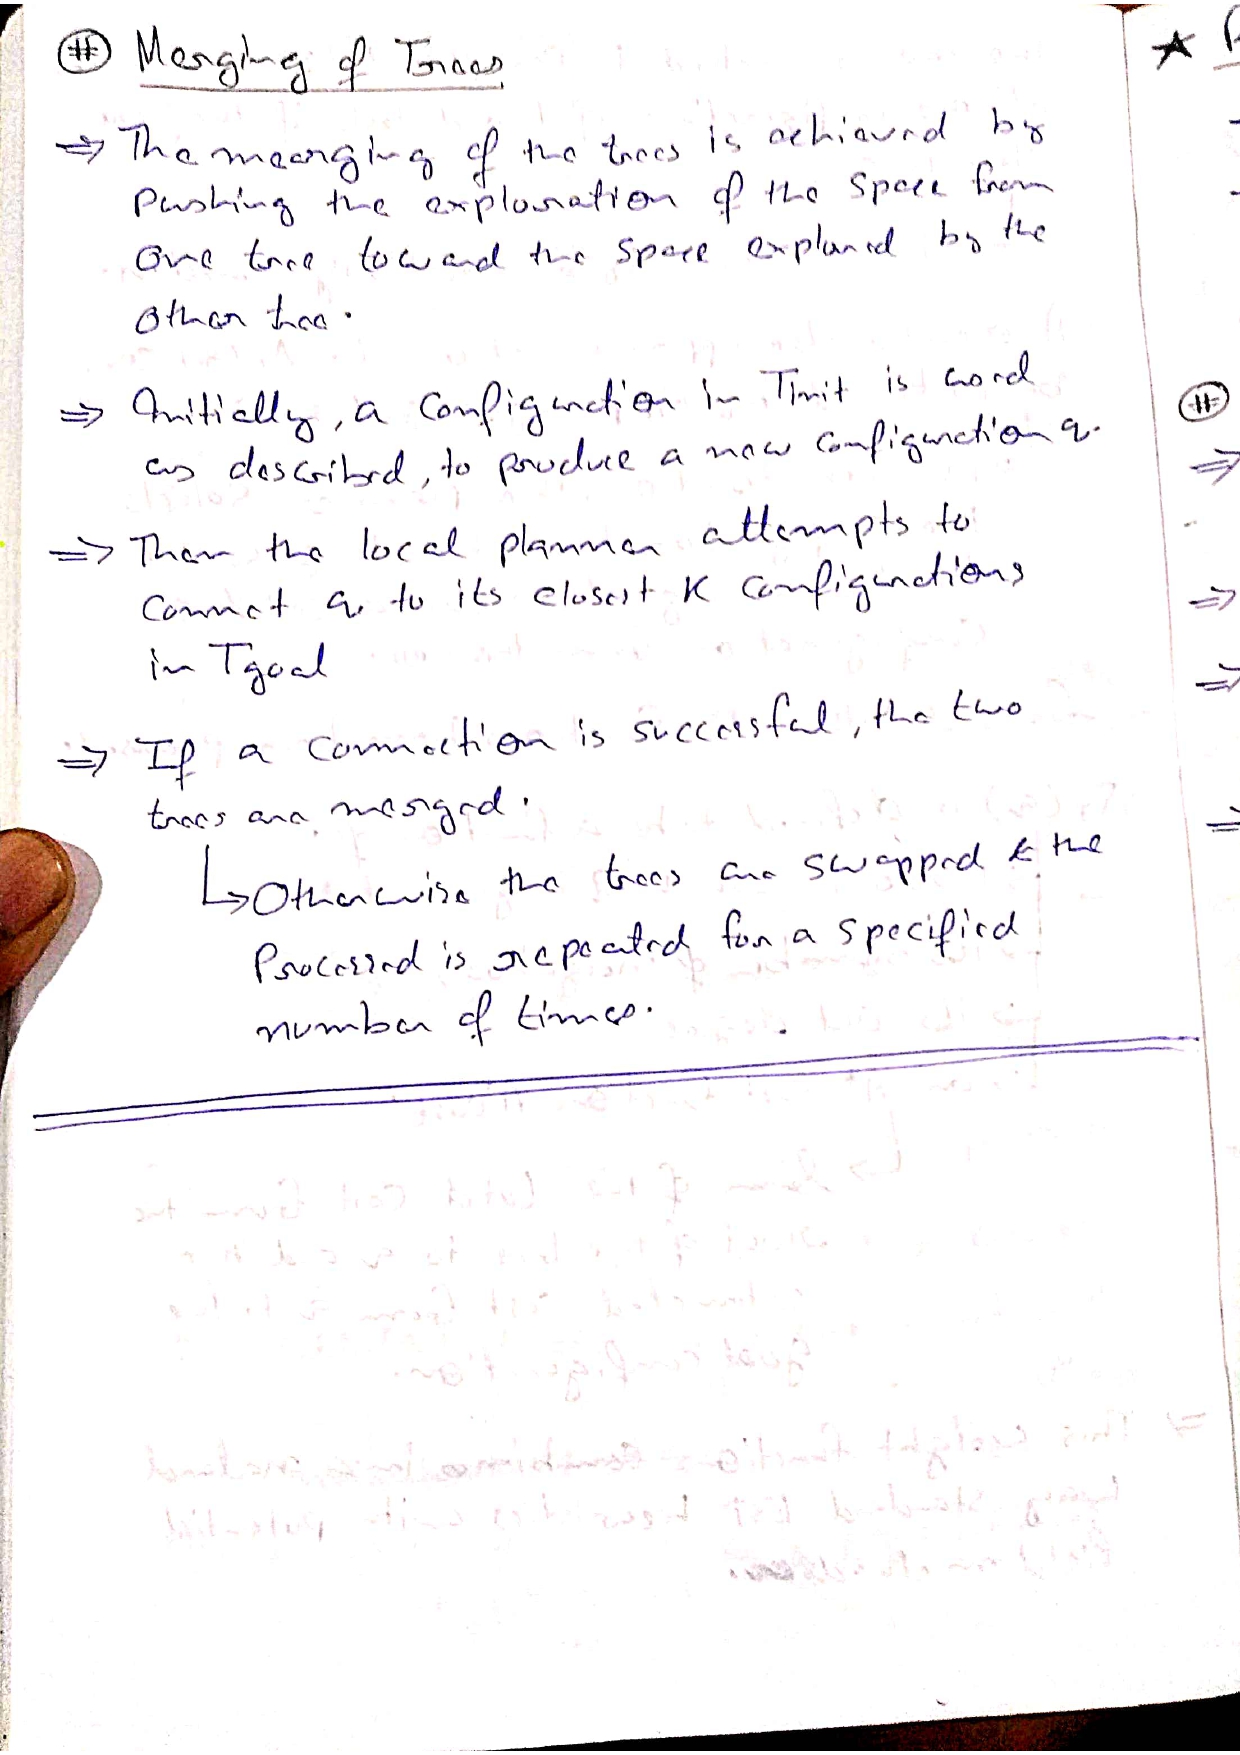 # Merging of Trees
⇒ The mearging of the trees is achieved by
Pushing the exploration of the space from
one tree toward the space explored by the
other tree.
⇒ Initially, a configuration in Tinit is used
as described, to produce a new configuration q.
⇒ Then the local planner attempts to
connect q to its closest K configurations
in Tgoal
⇒ If a connection is successful, the two
trees are merged.
↳ Otherwise the trees are swapped & the
Processed is repeated for a specified
number of times.